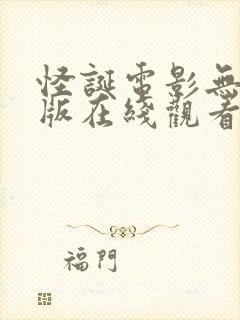 怪誕電影無
版在綫觀看
福門